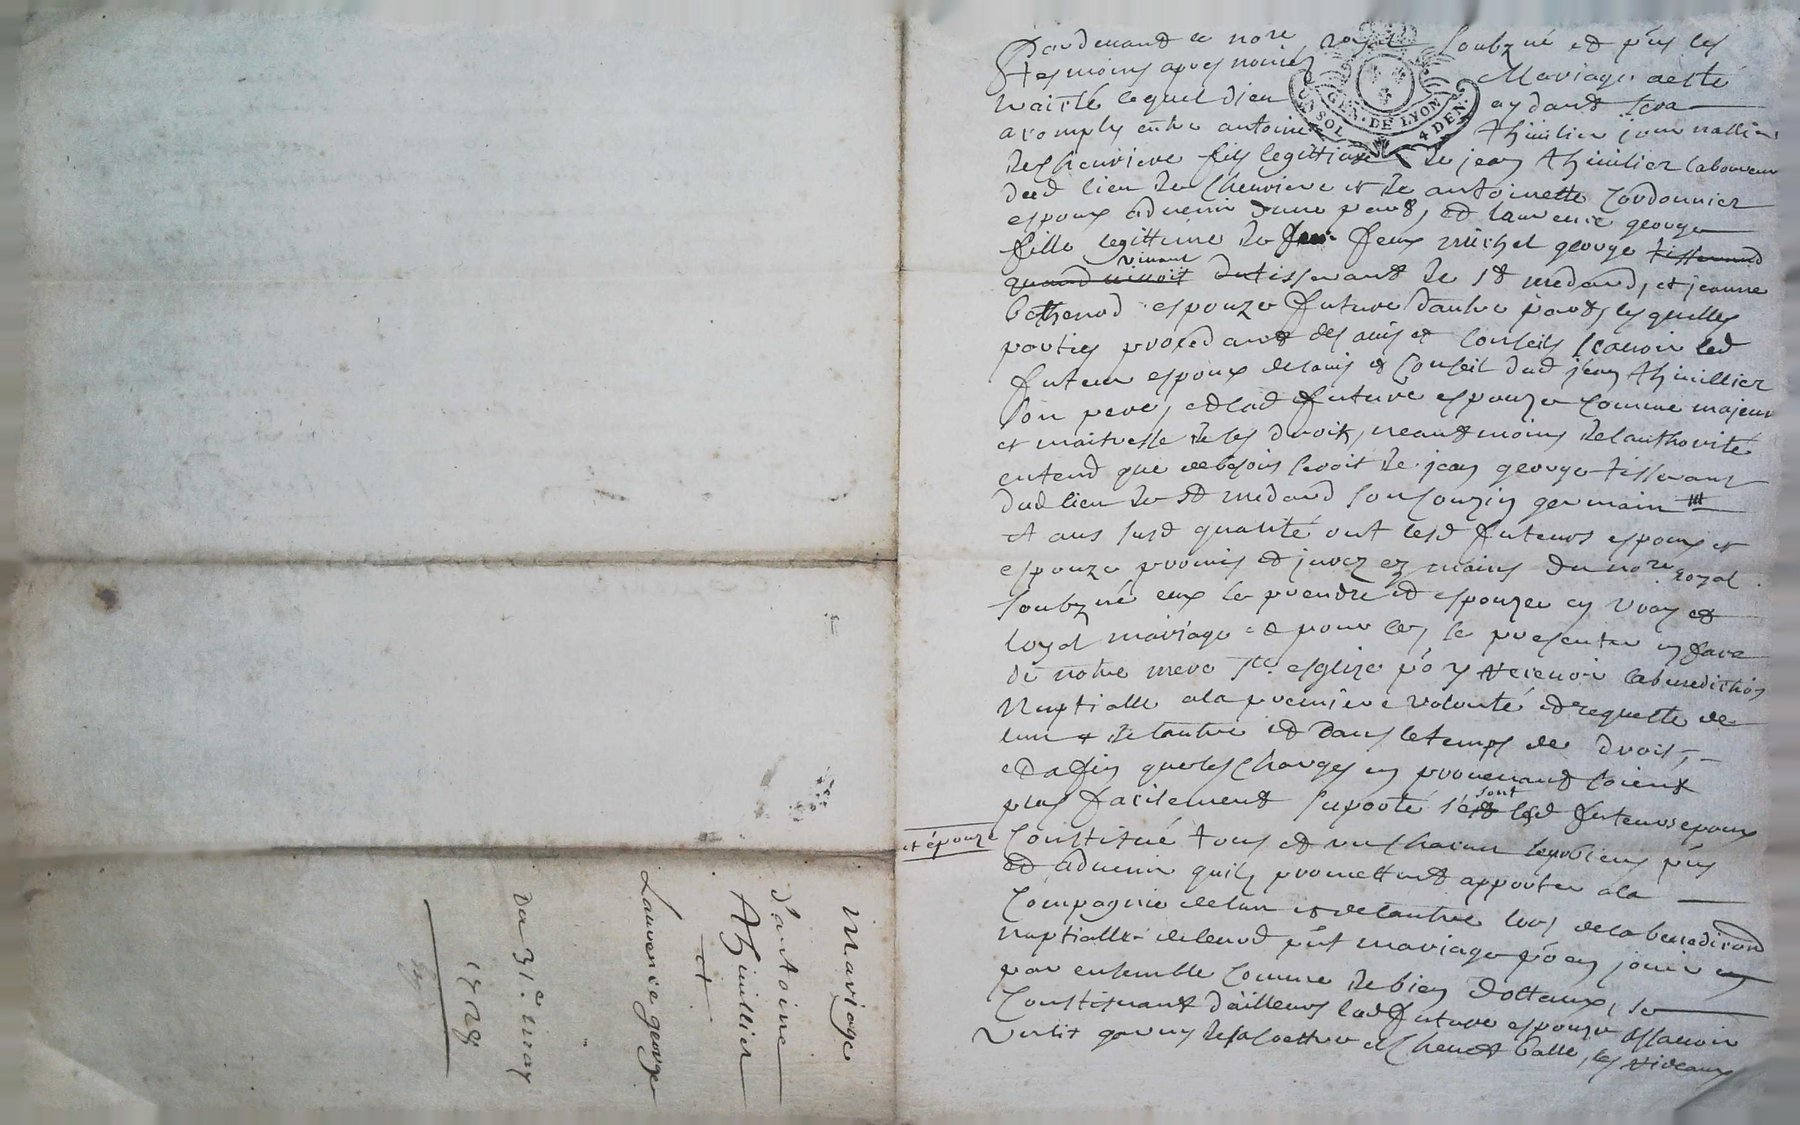 Mariage
d'antoine
Thinillier
et
Laurence george
Du 31e may
Pardevant le no.re royal soubzné et p'ns les
tesmoins apres només Mariage a esté
traicté lequel dieu aydant sera
acomply entre antoine thinilier journallier
de cheuriere fils legittime de jean thinilier laboureur
dud lieu de cheuriere et de antoinette Cordonnier
espoux aduenir dune part, et laurence george
fille legittime de feu michel george tisserand
quand uiuoit uiuant tisserant de St medard, et jeanne
espouze future dautre part, lesquelles
parties procedant des auis et conseils scauoir led
futeur espoux de lauis & conseil dud jean thinillier
son pere, et lad future espouze comme majeure
et maitresse de ses droits, neantmoins de lauthorité
entend que de besoin seroit de jean george tisserant
dud lieu de St medard son couzin germain
et aus susd qualité ont lesd futeurs espoux et
espouze promis et jurez ez mains du no.re royal
soubzné eux se prendre et espouzer en vray et
loyal mariage et pour ce, se presenter en face
de notre mere Ste esglize po.r y recevoir la benediction
Nuptialle a la premiere volonté et requeste de
lun et de lautre et dans le temps de droit,
et afin que les charges en prouenant soient
plus facilement suporté se sont lesd futeurs epoux
et épouze
Constitué tous et un chacun leurs biens p'ns
et aduenir quils promettent apporter a la
Compagnie de lun et de lautre lors de la benediction
nuptialle de leurd p'nt mariage po.r en jouir
par ensemble comme de bien dottaux, se
Constituant dailleurs lad future espouze assauoir
Un lit garny de sa coettre et cheuet balle, les rideaux
GEN. DE LYON
UN SOL 4 DEN.